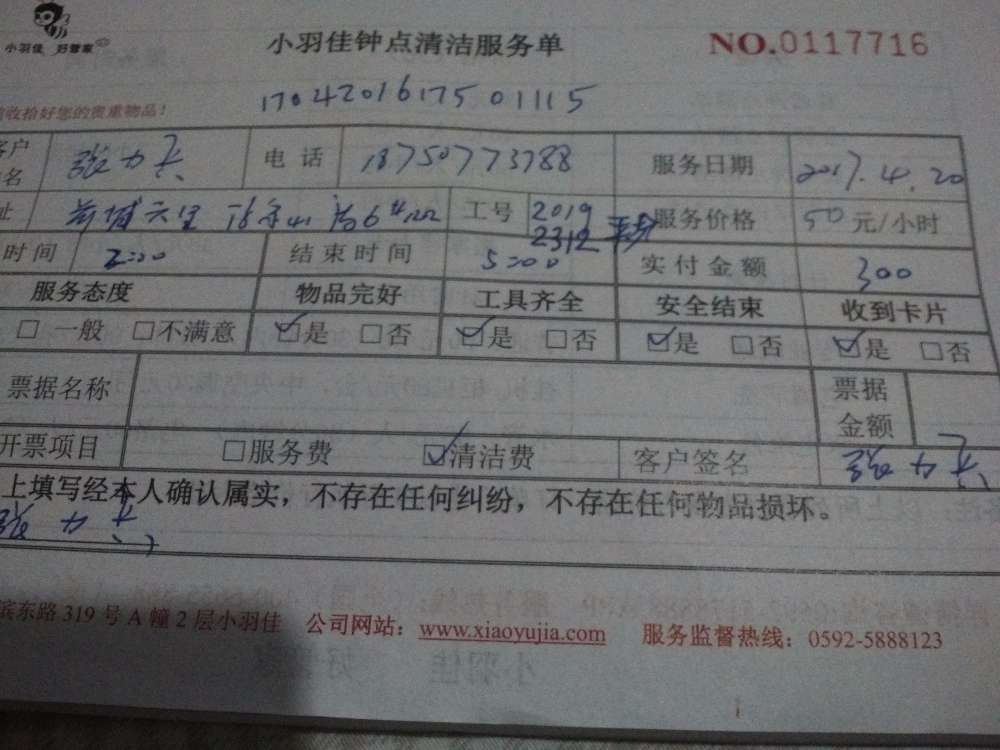 小羽佳 好管家
小羽佳钟点清洁服务单 NO.0117716
收拾好您的贵重物品！
1704201617501115
客户 电话 18750773788 服务日期 2017.4.20
名
址 工号 2019 服务价格 50元/小时
2312
时间 2:00 结束时间 5:00 实付金额 300
服务态度 物品完好 工具齐全 安全结束 收到卡片
□一般 □不满意 ☑是 □否 ☑是 □否 ☑是 □否 ☑是 □否
票据名称 票据
金额
开票项目 □服务费 ☑清洁费 客户签名
上填写经本人确认属实，不存在任何纠纷，不存在任何物品损坏。
滨东路319号A幢2层小羽佳 公司网站：www.xiaoyujia.com 服务监督热线：0592-5888123